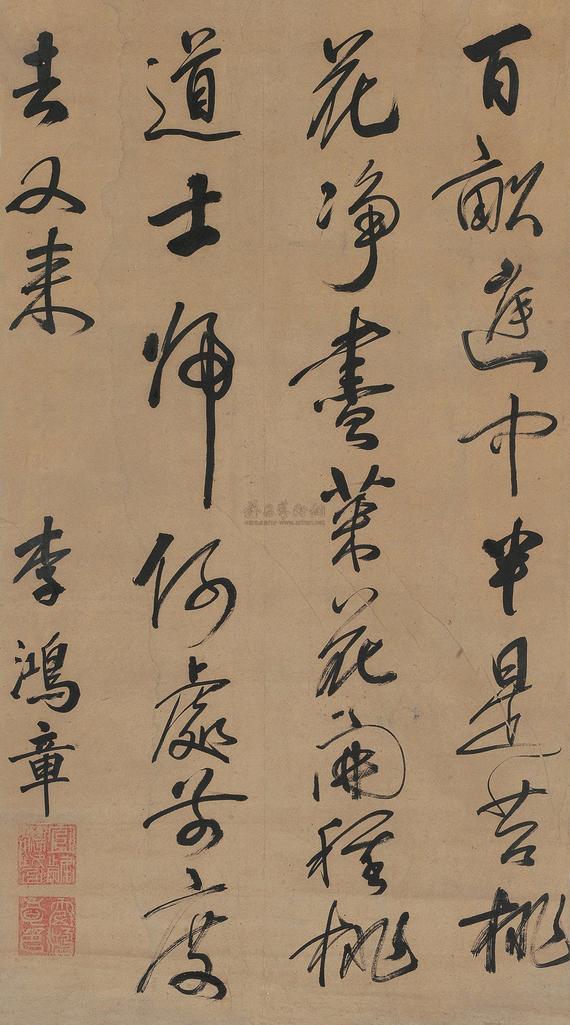 百畝庭中半是苔桃
花净盡菜花開種桃
道士歸何處前度
去又来
李鴻章